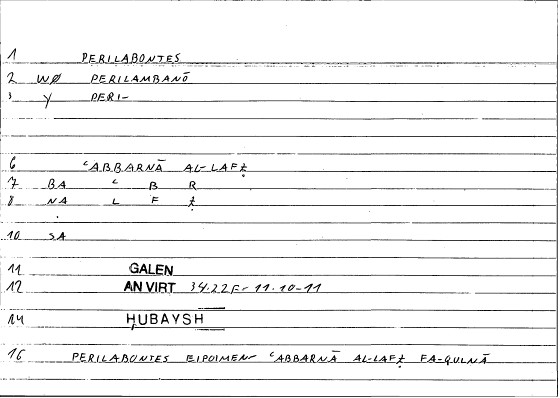 1 PERILABONTES
2 WØ PERILAMBANŌ
3 Y PERI-
6 ʿABBARNĀ AL-LAFẒ
7 BA ʿ B R
8 NA L F Ẓ
10 SA
11 GALEN
12 AN VIRT 34.22F- 11.10-11
14 ḤUBAYSH
16 PERILABONTES EIPOIMEN- ʿABBARNĀ AL-LAFẒ FA-QULNĀ